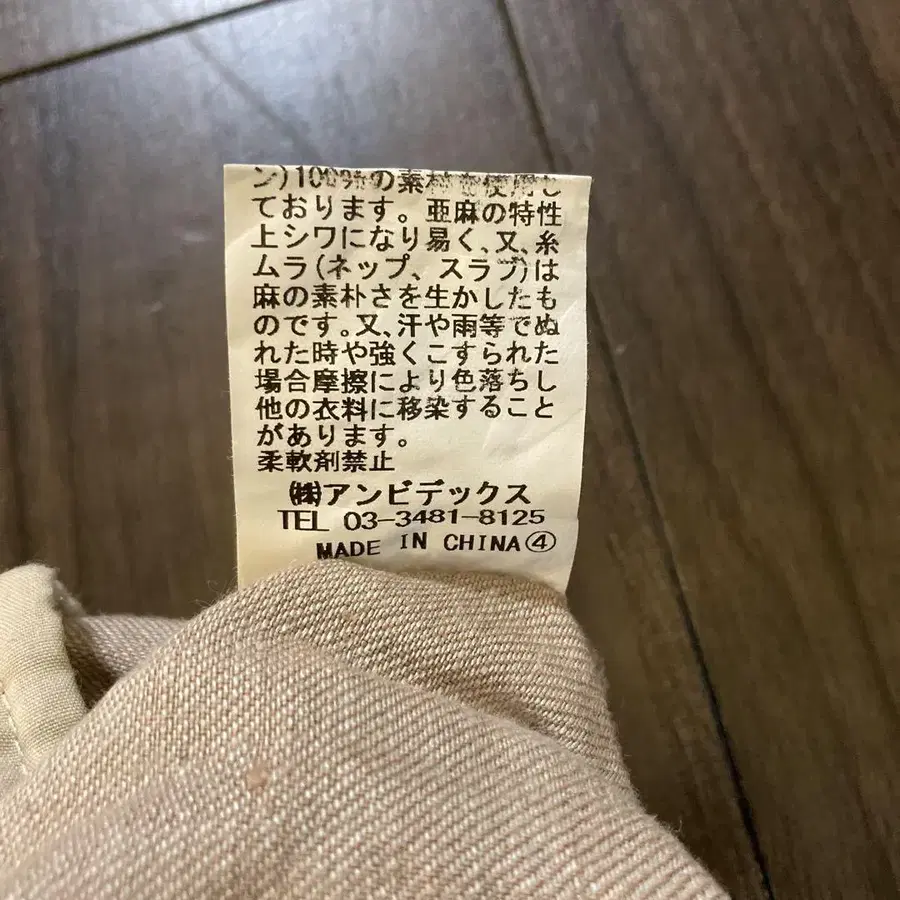 ン)100%の素材を使用し
ております。亜麻の特性
上シワになり易く、又、糸
ムラ(ネップ、スラブ)は
麻の素朴さを生かしたも
のです。又、汗や雨等でぬ
れた時や強くこすられた
場合摩擦により色落ちし
他の衣料に移染すること
があります。
柔軟剤禁止
㈱アンビデックス
TEL 03-3481-8125
MADE IN CHINA④